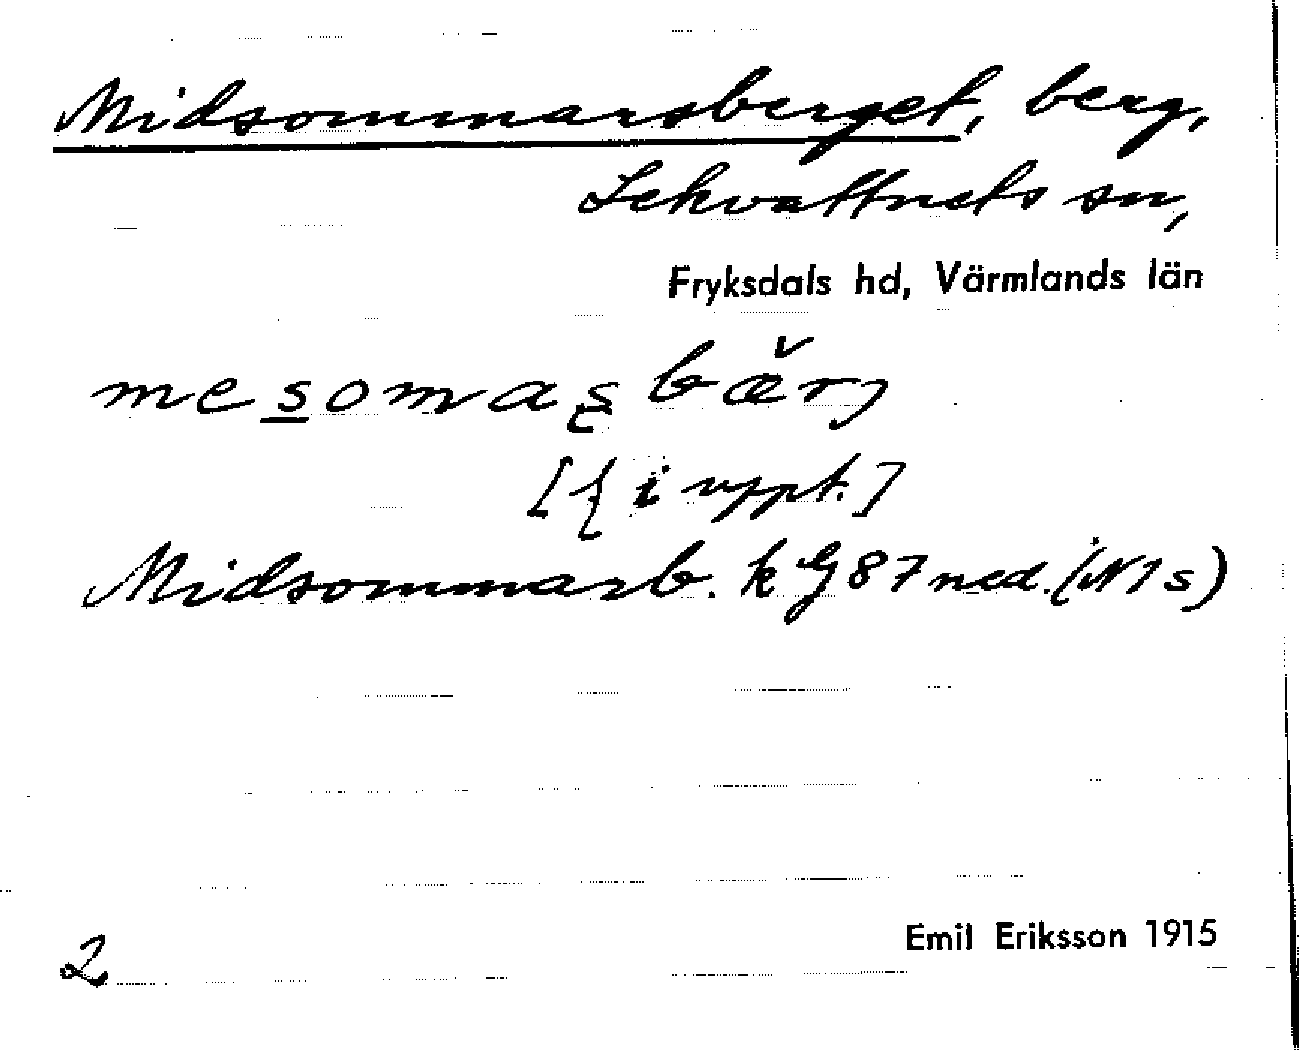 Midsommarsberget, berg,
Lekvattnets sn,
Fryksdals hd, Värmlands län
me s o m a s b æ̌ r j
[ i uppt.]
Midsommarb. k G 87 ned. (i N 1 s)
Emil Eriksson 1915
2